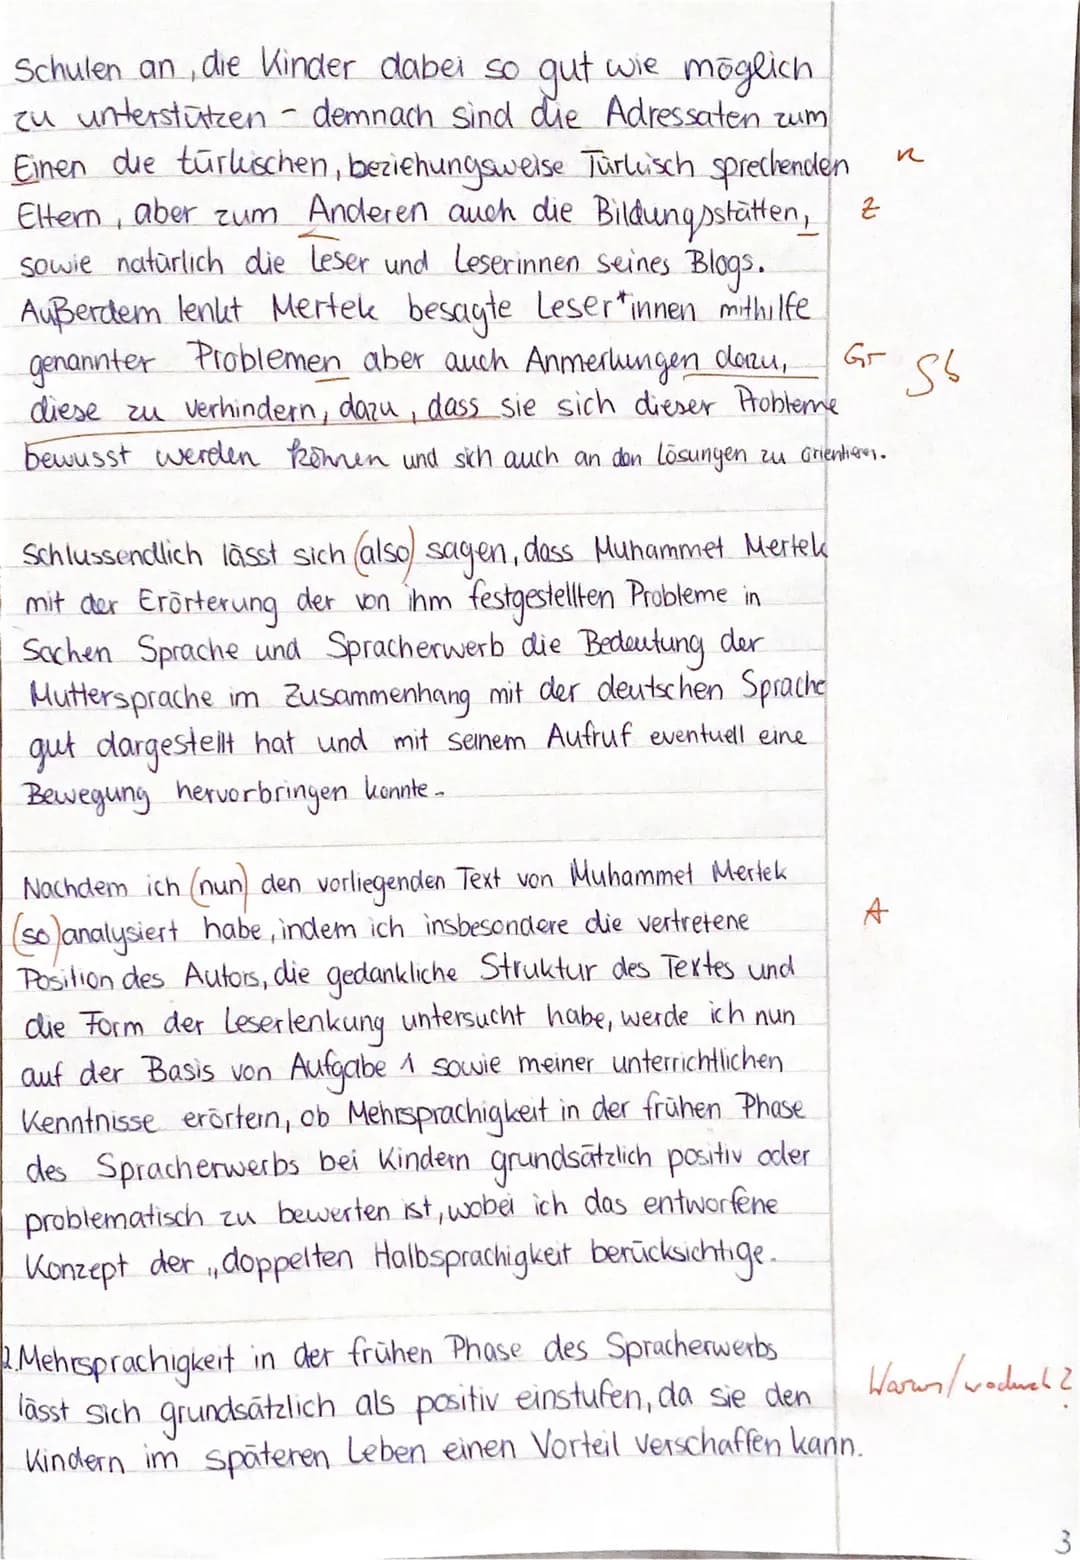 Schulen an, die Kinder dabei so gut wie möglich
zu unterstützen - demnach sind die Adressaten zum
Einen die türkischen, beziehungsweise Türkisch sprechenden R
Eltern, aber zum Anderen auch die Bildungsstätten, Z
sowie natürlich die Leser und Leserinnen seines Blogs.
Außerdem lenkt Mertek besagte Leser*innen mithilfe
genannter Problemen aber auch Anmerkungen dazu, Gr Sb
diese zu verhindern, dazu, dass sie sich dieser Probleme
bewusst werden können und sich auch an den Lösungen zu orientieren.
Schlussendlich lässt sich (also) sagen, dass Muhammet Mertek
mit der Erörterung der von ihm festgestellten Probleme in
Sachen Sprache und Spracherwerb die Bedeutung der
Muttersprache im Zusammenhang mit der deutschen Sprache
gut dargestellt hat und mit seinem Aufruf eventuell eine
Bewegung hervorbringen konnte.
Nachdem ich (nun) den vorliegenden Text von Muhammet Mertek
(so) analysiert habe, indem ich insbesondere die vertretene A
Position des Autors, die gedankliche Struktur des Textes und
die Form der Leserlenkung untersucht habe, werde ich nun
auf der Basis von Aufgabe 1 sowie meiner unterrichtlichen
Kenntnisse erörtern, ob Mehrsprachigkeit in der frühen Phase
des Spracherwerbs bei Kindern grundsätzlich positiv oder
problematisch zu bewerten ist, wobei ich das entworfene
Konzept der „doppelten Halbsprachigkeit berücksichtige.
2. Mehrsprachigkeit in der frühen Phase des Spracherwerbs
lässt sich grundsätzlich als positiv einstufen, da sie den Warum/wodurch?
Kindern im späteren Leben einen Vorteil verschaffen kann.
3